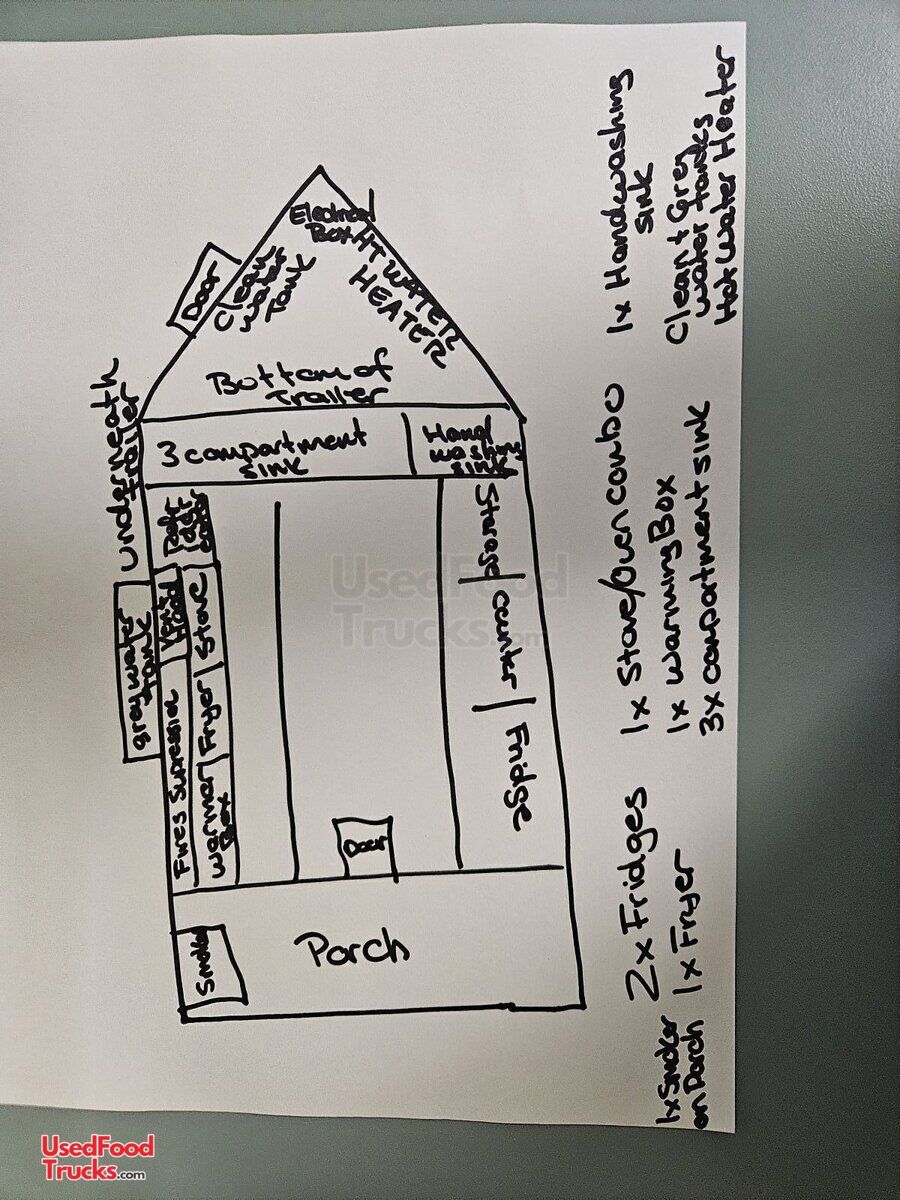 Electrical
Box
Ht WATER
HEATER
Door
Clean
water
Tank
Bottom of
Trailer
underneath
trailer
3 compartment
sink
Hand
washing
sink
Storage
counter
Fridge
grey water
tank
Vent
Hood
Stove
Fryer
Warmer
Box
Fires Supression
Door
Smoker
Porch
1x Smoker
on Porch
2x Fridges
1x Fryer
1x Stove/Oven combo
1x Warming Box
3x compartment sink
1x Handwashing
sink
Clean + Grey
water tanks
Hot Water Heater
UsedFood
Trucks.com
UsedFood
Trucks.com